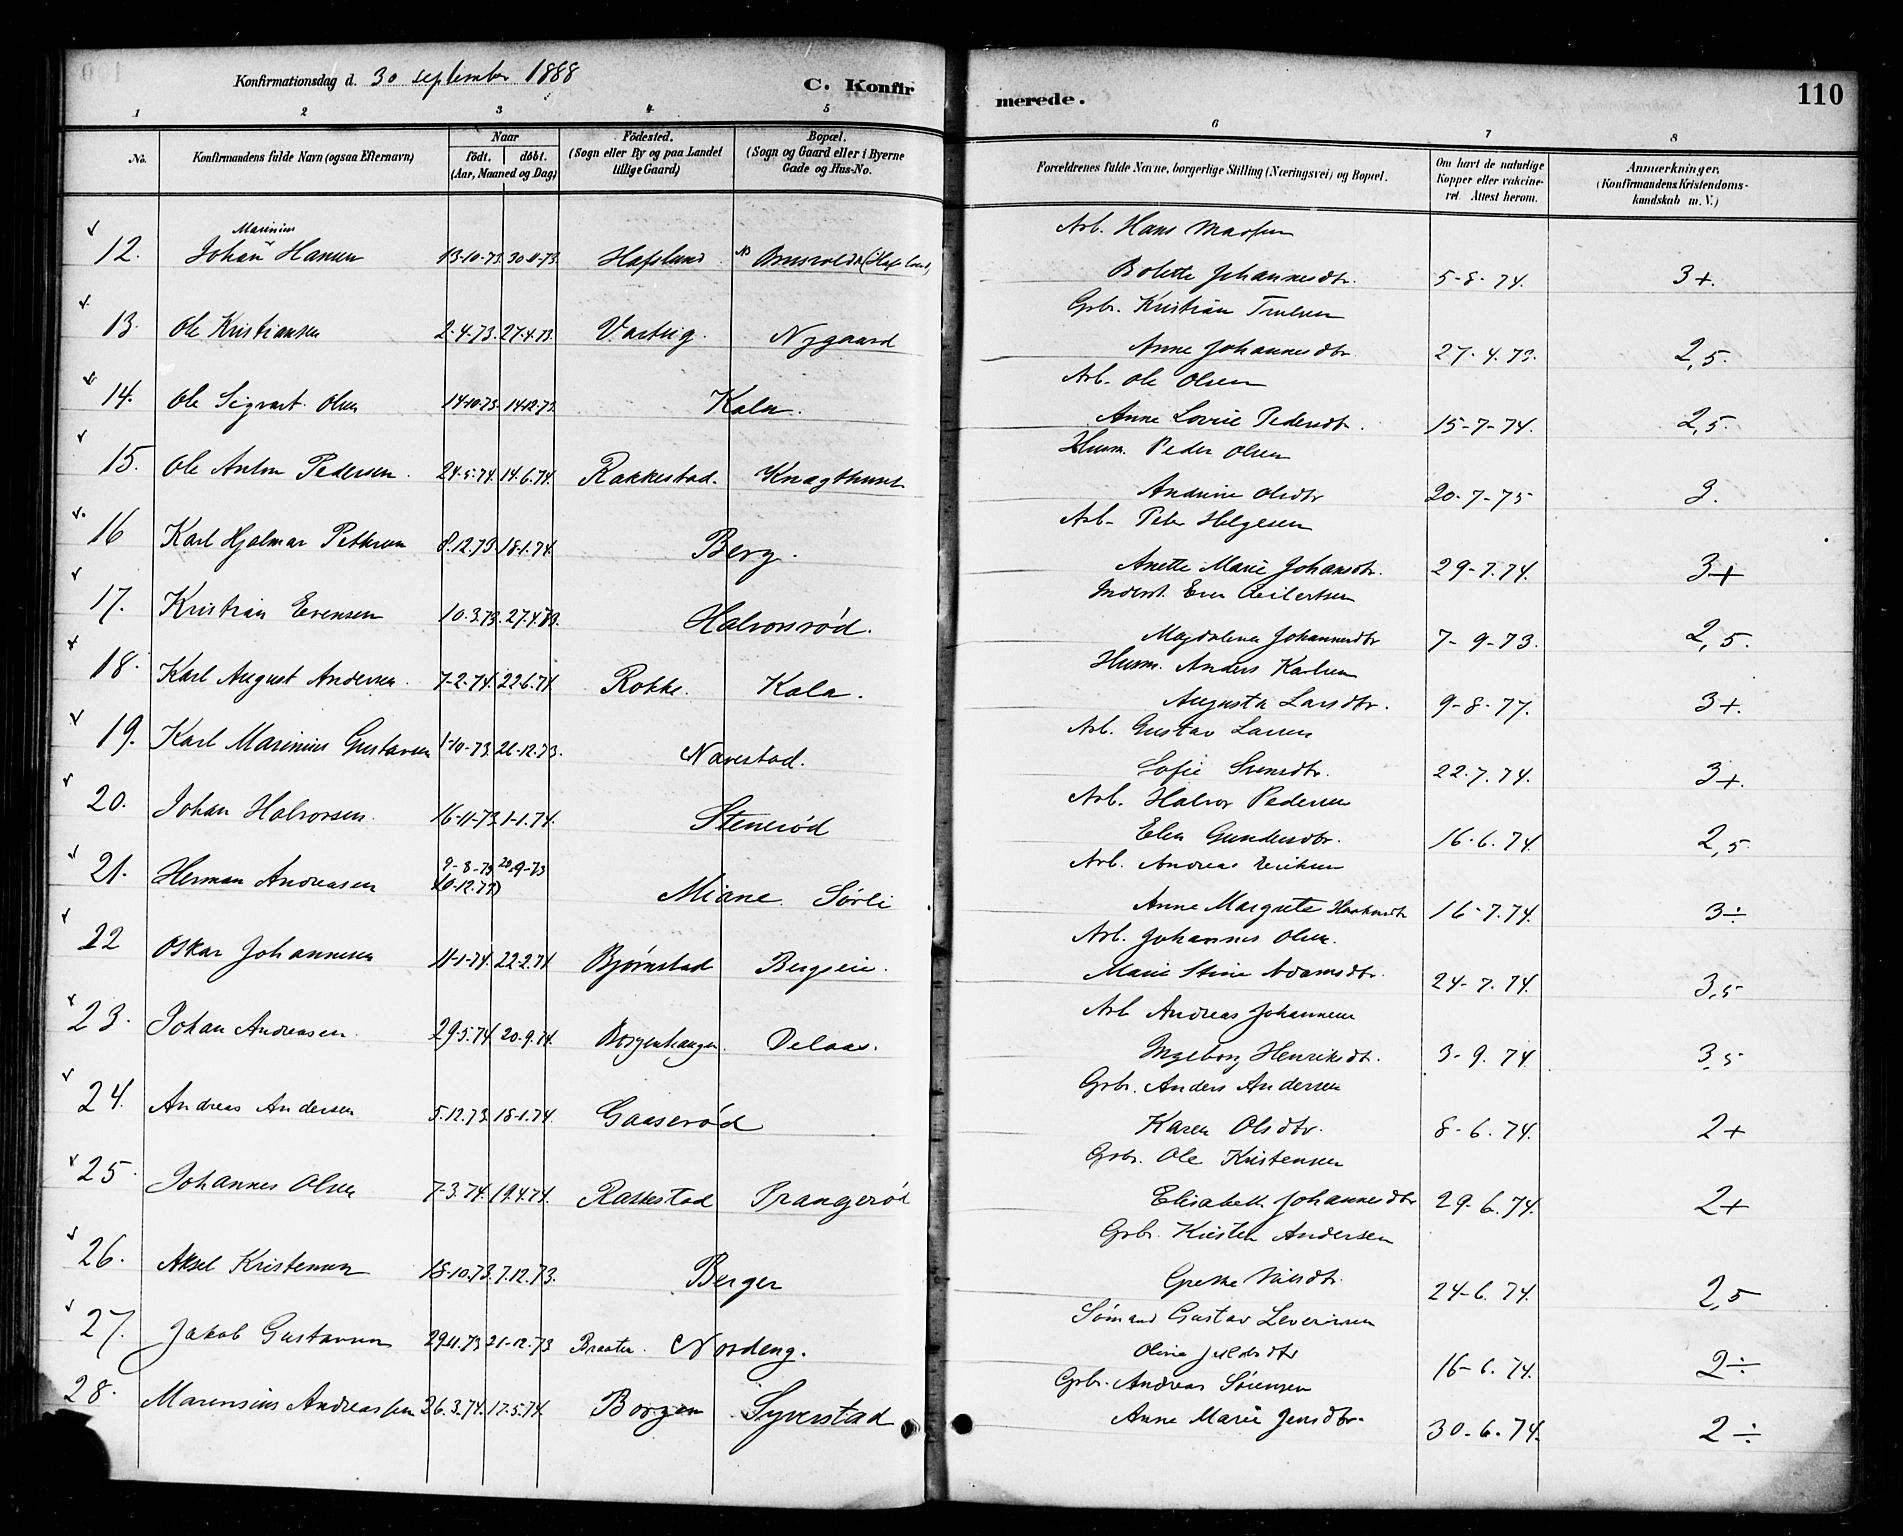 Konfirmationsdag d. 30 september 1888
C. Konfirmerede.
110
1 2 3 4 5 6 7 8
No. Konfirmandens fulde Navn (ogsaa Efternavn) Naar født. døbt. (Aar, Maaned og Dag) Födested. (Sogn eller By og paa Landet tillige Gaard) Bopæl. (Sogn og Gaard eller i Byerne Gade og Hus-No. Forældrenes fulde Navne, borgerlige Stilling (Næringsvei) og Bopæl. Om havt de naturlige Kopper eller vakcineret Attest herom. Anmærkninger. (Konfirmandens Kristendomskundskab m. V.)
Marinius
Arb. Hans
12. Johan Hansen 13-10-73 30-11-73 Hafslund
Bolette Johannesdtr. 5-8-74. 3+.
Grb. Kristian Trulsen
13. Ole Kristiansen 2-4-73. 27-4-73. Varteig. Nygaard
Anne Johannesdtr. 27-4.73. 2,5.
Arb. Ole Olsen
14. Ole Sigvart Olsen 14-10-73. 14-12-73. Kala.
Anne Lovise Pedersdtr. 15-7-74. 2,5.
Husm. Peder Olsen
15. Ole Anton Pedersen. 24-5-74. 14.6.74. Rakkestad.
Andrine Olsdtr 20-7-75 3.
Arb. Peter Helgesen
16 Karl Hjalmar Pettersen 8.12.73. 18-1.74. Berg.
Anette Marie Johansdtr. 29-7.74. 3+
Inderst. Even Eilertsen
17. Kristian Evensen 10.3.73. 27.4.73. Halvorsrød.
Magdalena Johannesdtr 7-9-73. 2,5.
Husm. Anders Karlsen
18. Karl August Andersen. 7-2-74. 22-6.74 Rokke. Kala.
Augusta Larsdtr. 9-8-77. 3+.
Arb. Gustav Larsen
19. Karl Marinius Gustavsen 1-10-73. 21-12.73. Navestad.
Sofie Svensdtr. 22.7.74. 3+.
Arb. Halvor Pedersen
20. Johan Halvorsen. 16-11-73. 1-1.74. Stenerød
Elen Gundersdtr. 16-6.74. 2,5
Arb. Andreas
21. Herman Andreasen 9-8-73 20-9-73 Miane. Sørli
Anne Margrete 16-7.74. 3÷
Arb. Johannes Olsen.
22 Oskar Johannesen 11-1-74. 22-2.74 Bjørnstad Bergseie.
Marie Stine Adamsdtr. 24-7.74. 3,5
Arb Andreas Johannesen
23. Johan Andreasen. 29.5.74. 20-9.74. Borgenhaugen.
Ingeborg Henriksdtr. 3-9.74 3,5
Grb. Anders Andersen
24. Andreas Andersen 5.12.73. 18-1.74. Gaaserød
Karen Olsdtr. 8-6.74. 2+
Grb. Ole Kristensen
25. Johannes Olsen 7-3.74. 19.4.74. Rakkestad Prangerød
Elisabeth Johannesdtr 29-6.74. 2+
Grb. Kristen Andersen
26. Aksel Kristensen 18-10.73. 7.12.73. Berger
Grethe Nilsdtr. 24-6.74. 2,5
Sømand Gustav Severinsen
27. Jakob Gustavsen 29.11.73 21-12.73 Braaten. Nordeng.
Oline 16-6.74. 2÷
Grb. Andreas Sørensen
28. Marensius Andreassen 26.3.74. 17-5.74 Borgen Syverstad
Anne Marie Jensdtr. 30-6.74. 2÷